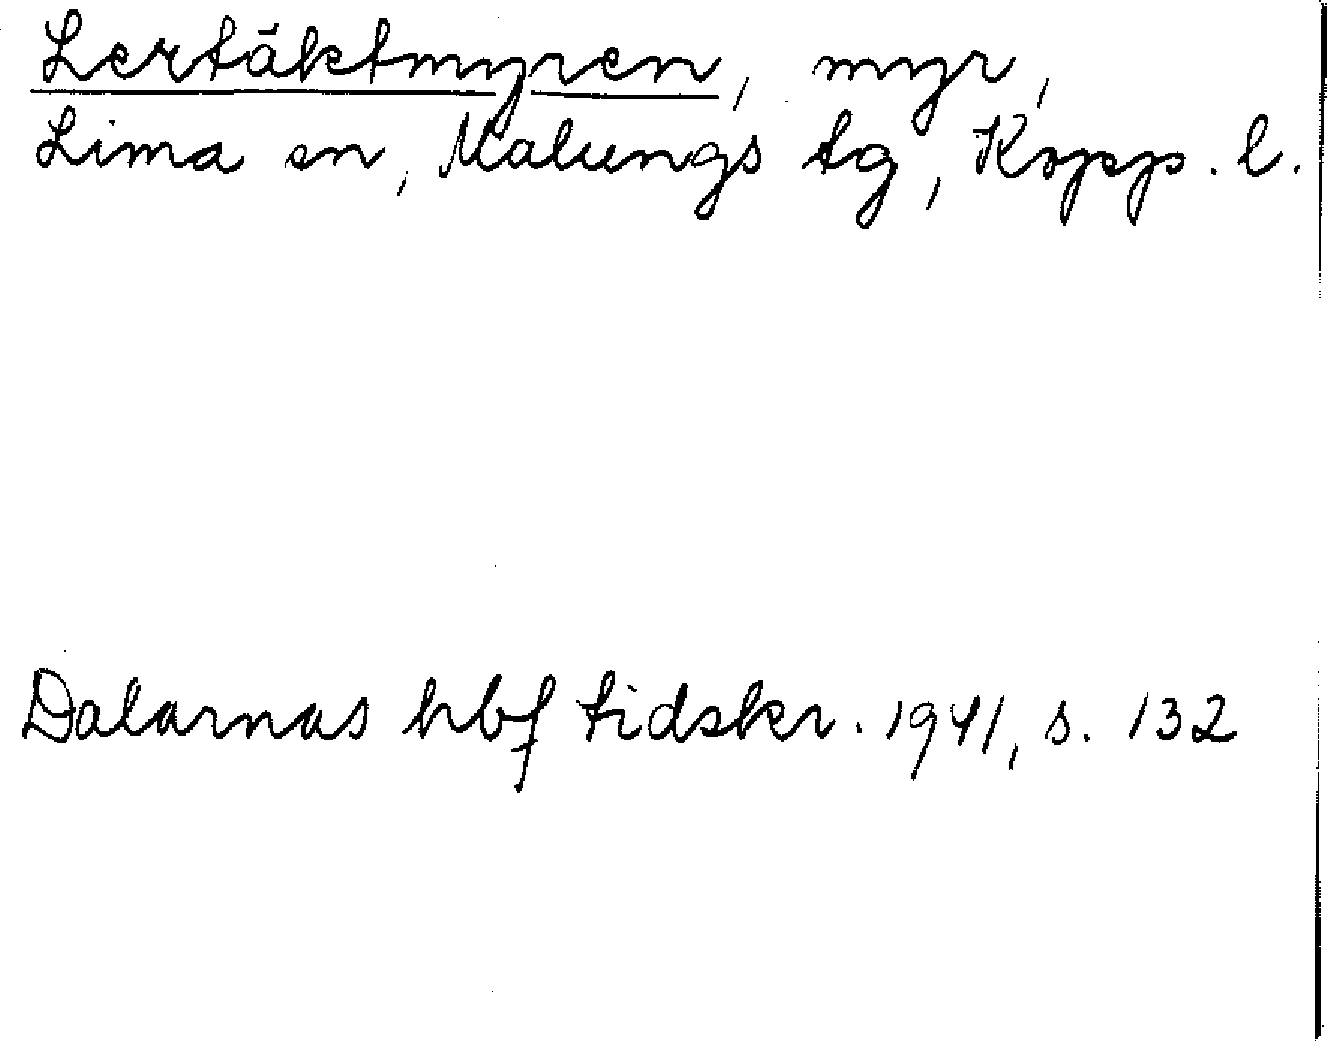 Lertäktmyren, myr,
Lima sn, Malungs tg, Kopp. l.
Dalarnas hbf tidskr. 1941, s. 132